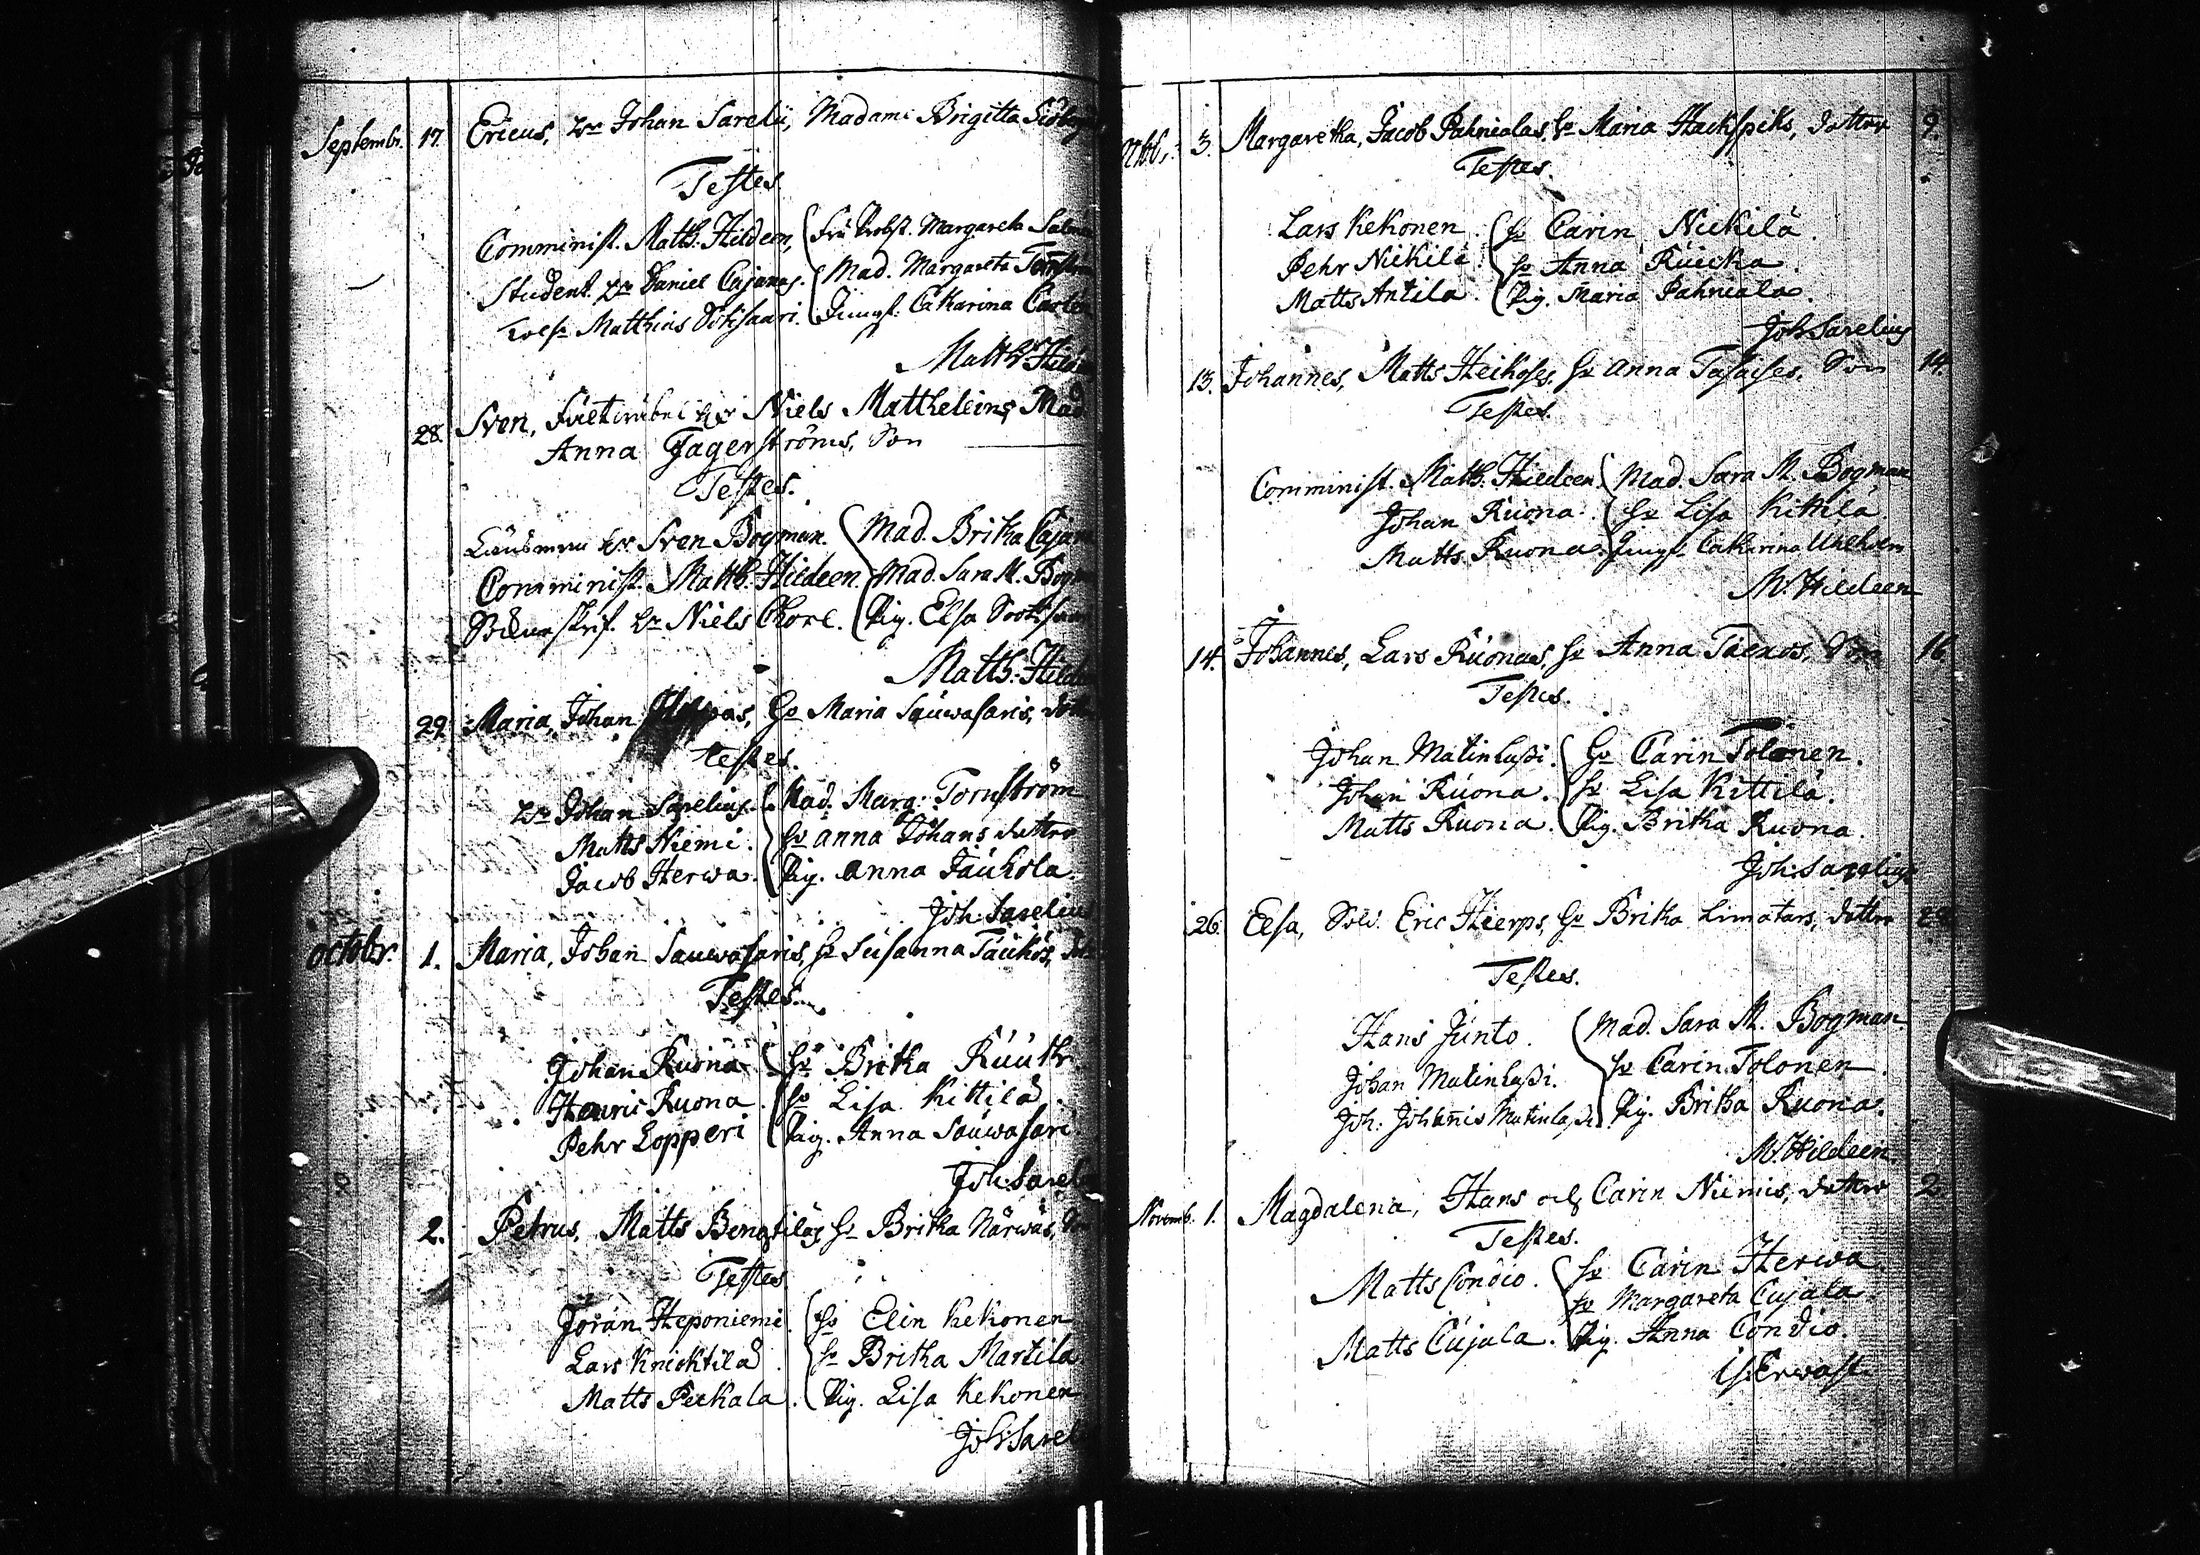 Septembr. 17. Ericus, Hr Johan Sarelii, Madame Brigitta
Testes
Comminist. Math. Hildeen, Fru Probst. Margareta
Student. Hr Daniel Cajanus. Mad. Margareta
Matthias Sohsaari. Jungf. Catharina
Matth. Hild
28. Sven, Hr Niels Mattheleins, Mad
Anna Fagerströms, Son
Testes.
Länsman Hr Sven Bogman. Mad. Britha Cajan
Comminist. Matth. Hildeen. Mad. Sara M. Bogm
Hr Niels Chore. Pig. Elsa
Matth. Hild
29. Maria, Johan Hu Maria Sauwasaris, dotte
testes.
Hr Johan Sarelius. Mad. Marg: Tornström
Matts Niemi. Hu Anna Johans dotter
Jacob Herwa. Pig. Anna Jaukola
Joh: Sareliu
octobr. 1. Maria, Johan Sauwasaris, Hu Susanna
Testes.
Johan Ruona Hu Britha
Henric Ruona. Hu Lisa Kittilä.
Pehr Lopperi Pig. Anna Sauwasari
Joh: Sarel
2. Petrus, Matts Bengtiläs, Hu Britha Närwäs,
Testes
Jöran Heponiemi. Hu Elin Kekonen
Lars Knicktilä. Hu Britha Martila
Matts Peckala. Pig. Lisa Kekonen
Joh: Sarel
3. Margaretha, Jacob Pahnialas, Hu Maria Hackspiks, dotter 9.
Testes.
Lars Kekonen. Hu Carin Nickilä.
Pehr Nickilä. Hu Anna
Matts Antila. Pig. Maria Pahniala.
Joh: Sarelius
13. Johannes, Matts Heikoses, Hu Anna Son 14.
Testes.
Comminist. Math. Hildeen. Mad. Sara M. Bogman
Johan Ruona. Hu Lisa Kittilä
Matts Ruona. Jungf. Catharina
M. Hildeen
14. Johannes, Lars Ruonas, Hu Anna Son 16
Testes.
Johan Matinlassi. Hu Carin Tolonen.
Johan Ruona. Hu Lisa Kittilä.
Matts Ruona. Pig. Britha Ruona.
Joh: Sarelius
26. Elsa, Sold. Eric Hierps, Hu Britha Limatars, dotter
Testes.
Hans Junto. Mad. Sara M. Bogman
Johan Matinlassi. Hu Carin Tolonen
Joh: Johannis Matinlassi. Pig. Britha Ruona.
M. Hildeen.
Novemb. 1. Magdalena, Hans och Carin Niemis, dotter 2
Testes.
Matts Condio. Hu Carin Herwa
Hu Margareta Cujala
Matts Cujala. Pig. Anna Condio.
Is: Erwast